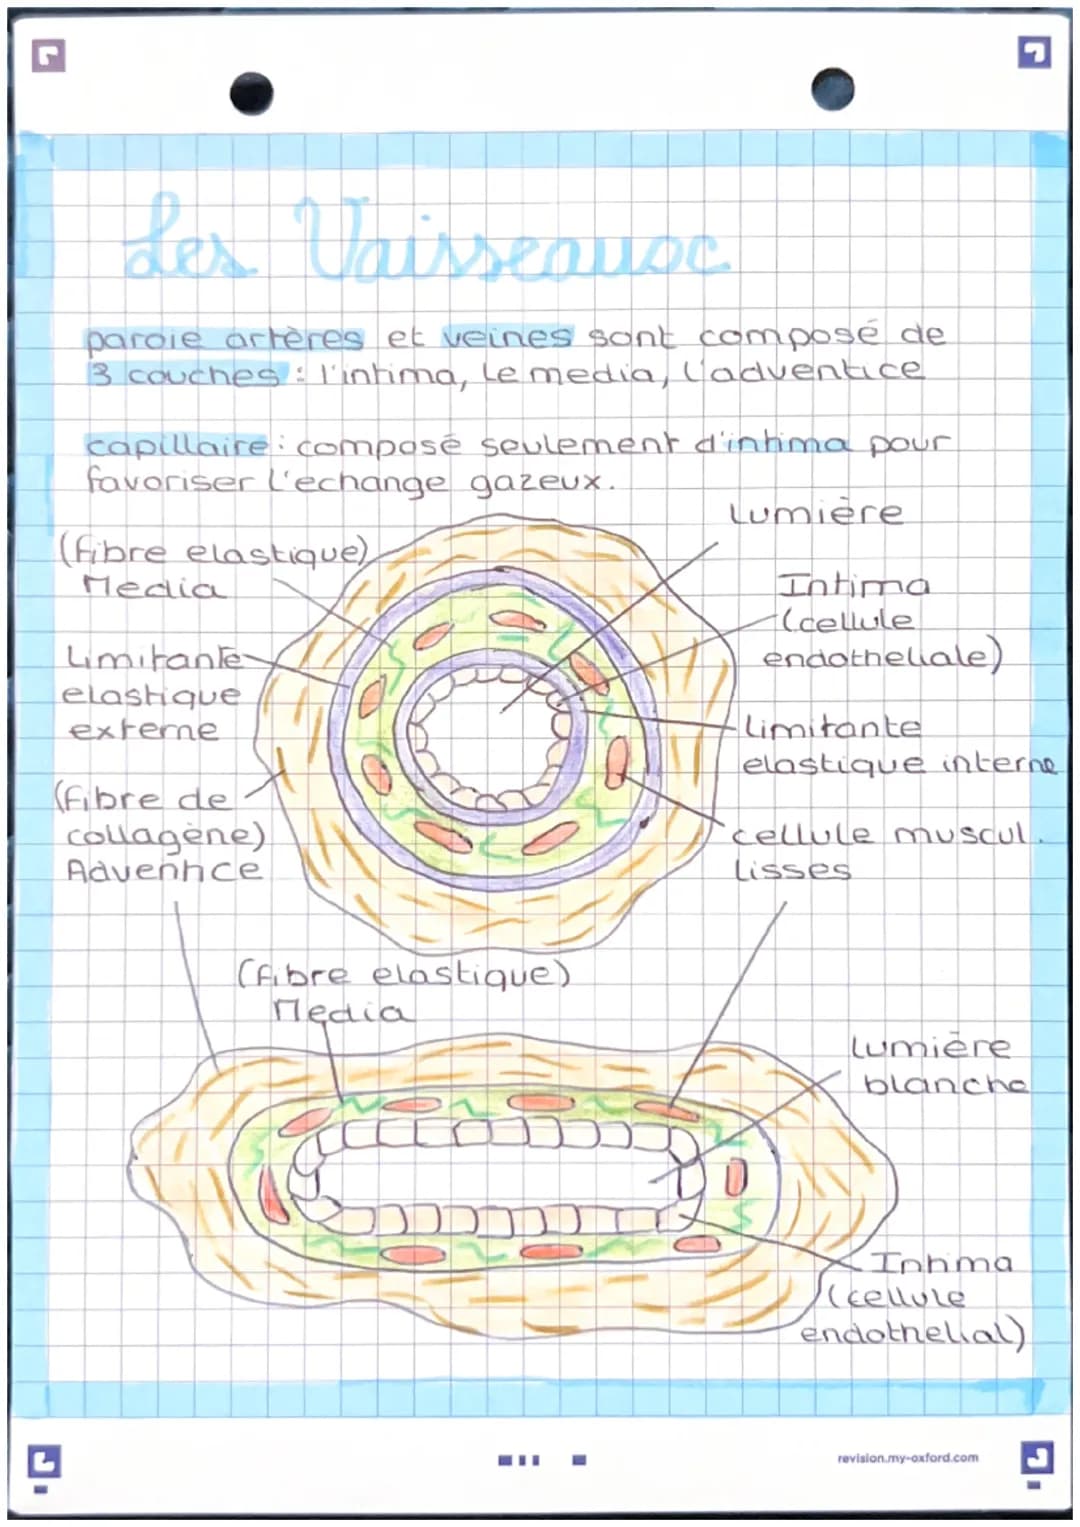 Les Vaisseaux
paroie artères et veines sont composé de
3 couches : l'intima, le media, l'adventice
capillaire : composé seulement d'intima pour
favoriser l'echange gazeux.
Lumière
(fibre elastique)
Media
Intima
(cellule
endotheliale)
Limitante
elastique
externe
Limitante
elastique interne
(fibre de
collagène)
Adventice
cellule muscul.
lisses
(fibre elastique)
Media
lumière
blanche
Intima
(cellule
endothelial)
revision.my-oxford.com